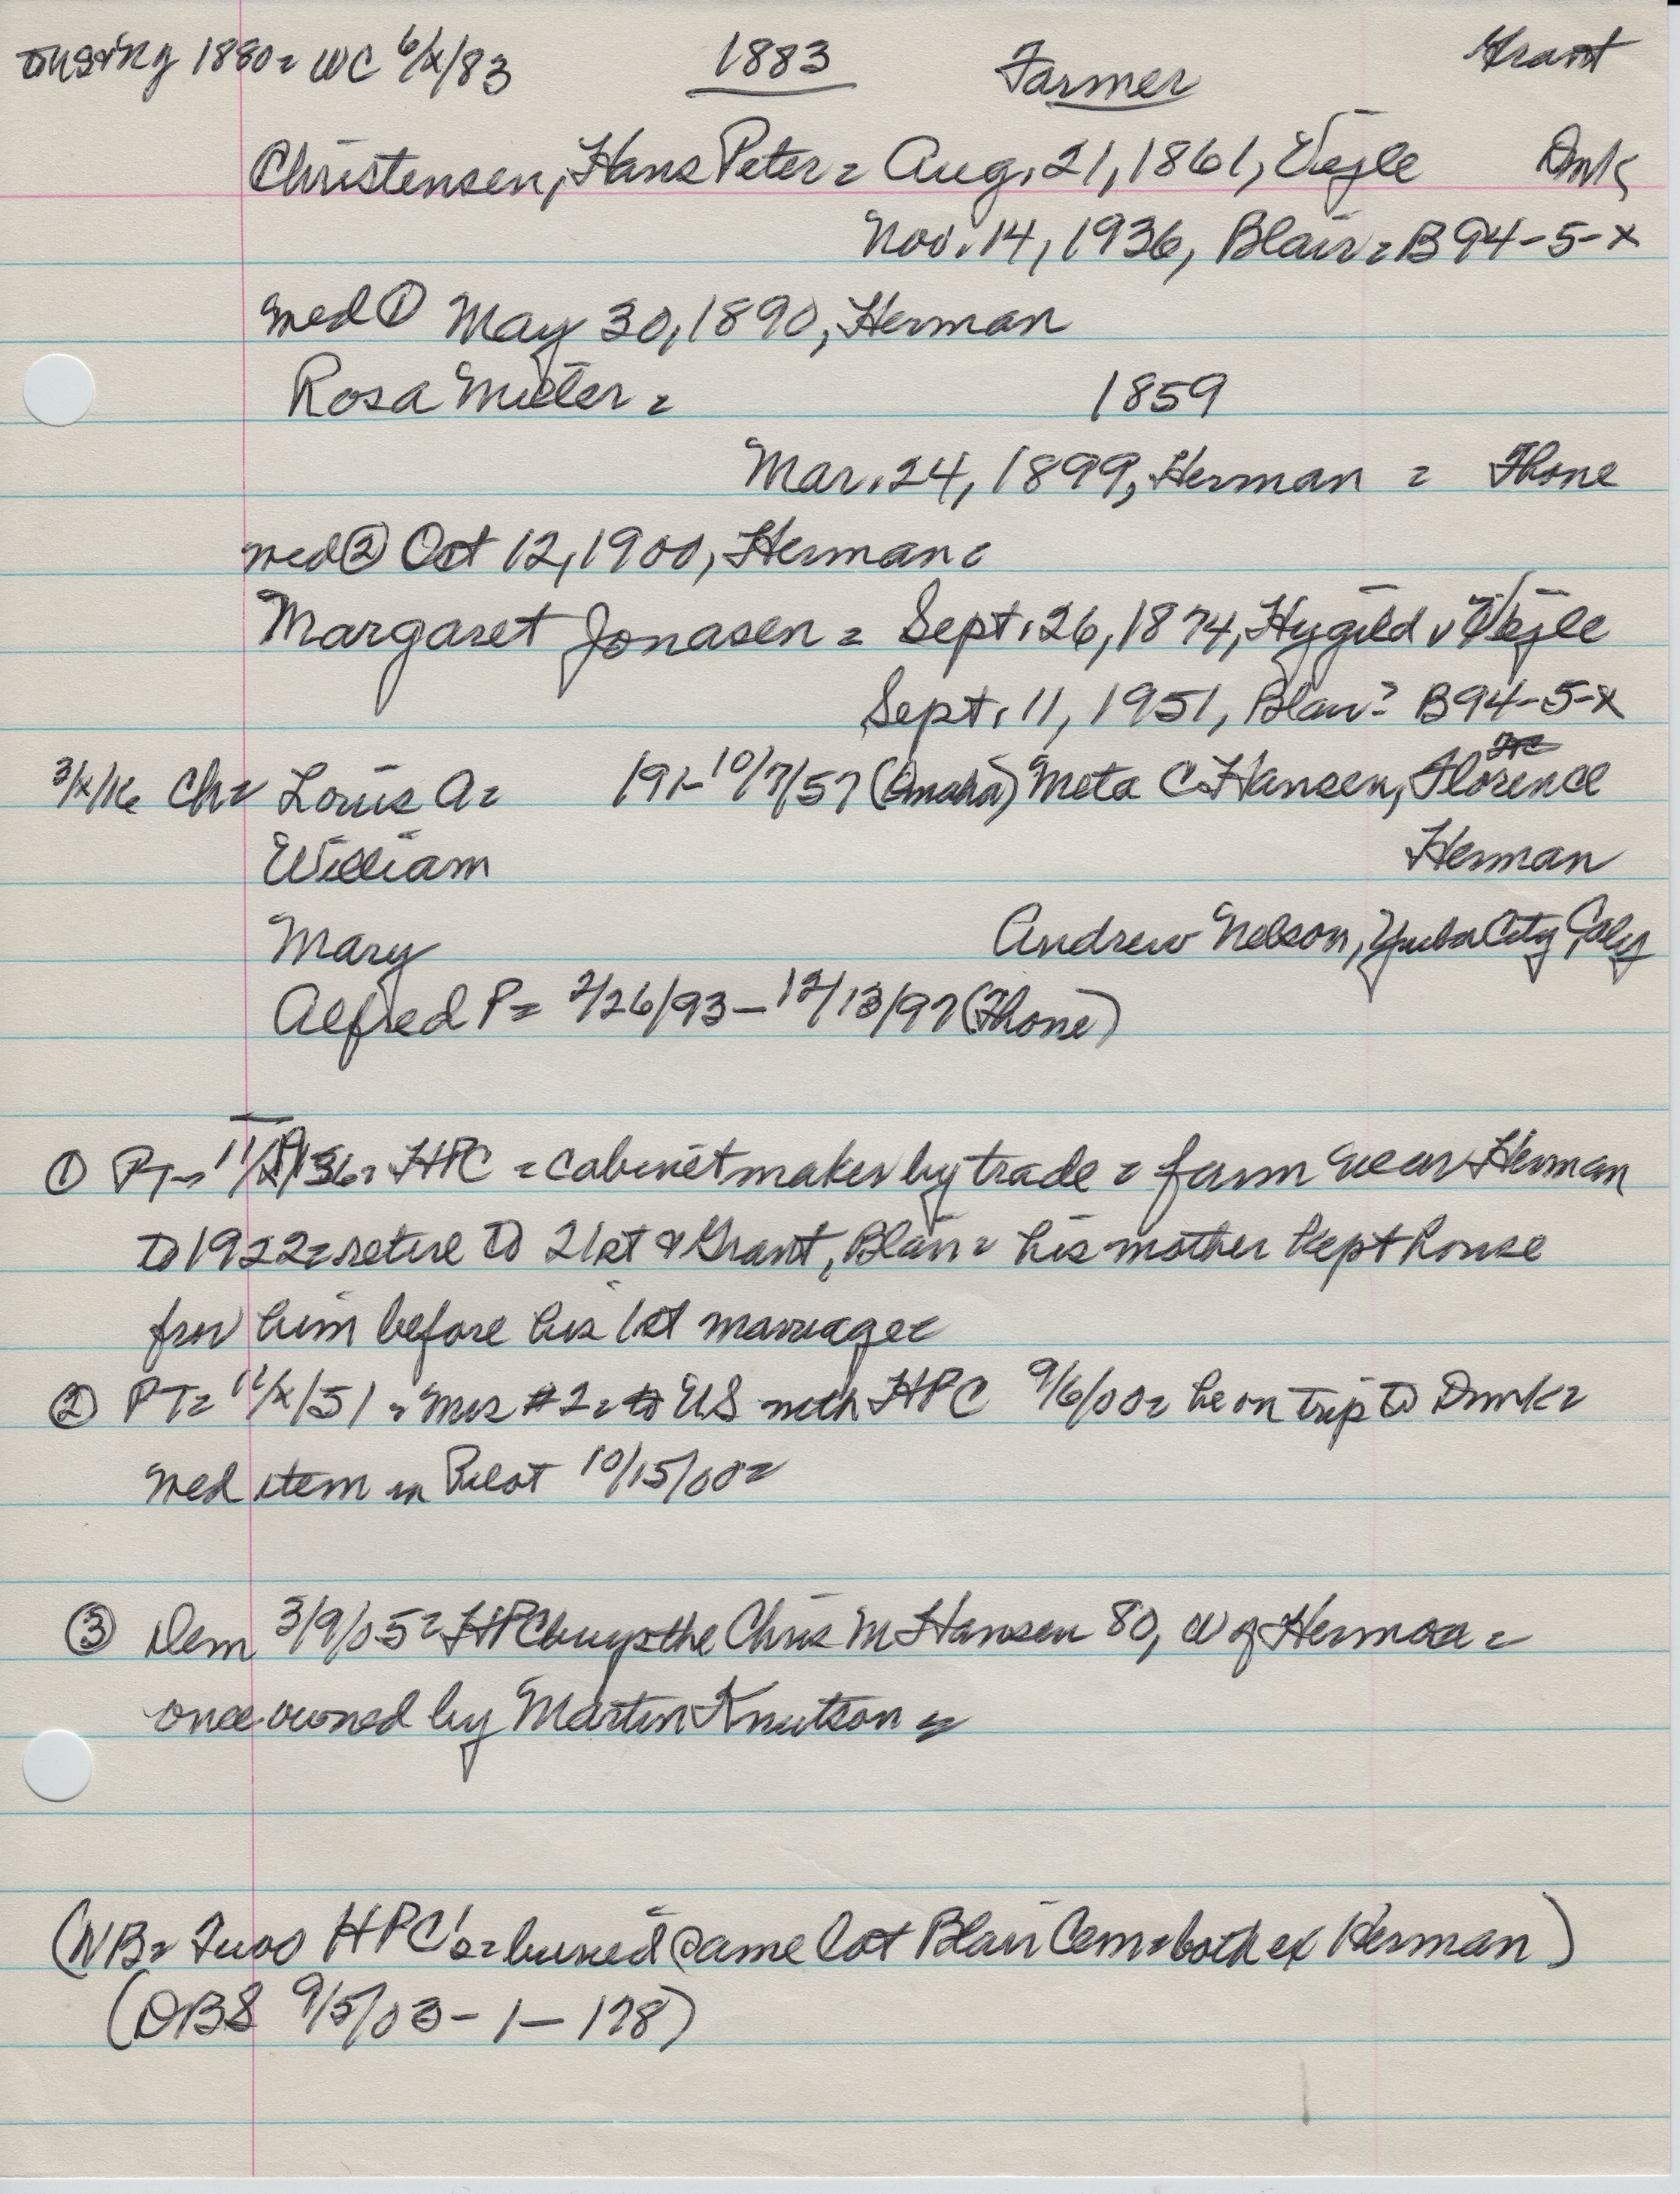 1880 = WC 6/x/83 1883 Farmer Grant
Christensen, Hans Peter = Aug. 21, 1861, Vejle Dmk
Nov. 14, 1936, Blair = B94-5-x
med ① May 30, 1890, Herman
Rosa Miller = 1859
Mar. 24, 1899, Herman = Fhone
med ② Oct 12, 1900, Herman =
Margaret Jonasen = Sept. 26, 1874, Hygild v Vejle
Sept. 11, 1951, Blair = B94-5-x
3/x/16 Ch = Louis A = 191- 10/7/57 (Omaha) Meta C. Hansen, Florence
William Herman
Mary Andrew Nelson, Yuba City, Calif
Alfred P = 2/26/93 - 12/13/97 (Fhone)
① PT = HPC = cabinetmaker by trade = farm near Herman
to 1922 = retire to 21st & Grant, Blair = his mother kept house
for him before his 1st marriage =
② PT = 11/x/51 = Mrs #2 = to US with HPC 9/6/00 = he on trip to Dmk =
med item in Pilot 10/15/00 =
③ Dem 3/9/05 = HPC buys the Chris M Hansen 80, W of Herman =
once owned by Martin Knutson =
(NB = Two HPC's = buried same lot Blair Cem = both ex Herman)
(DBS 9/5/03 - 1 - 178)